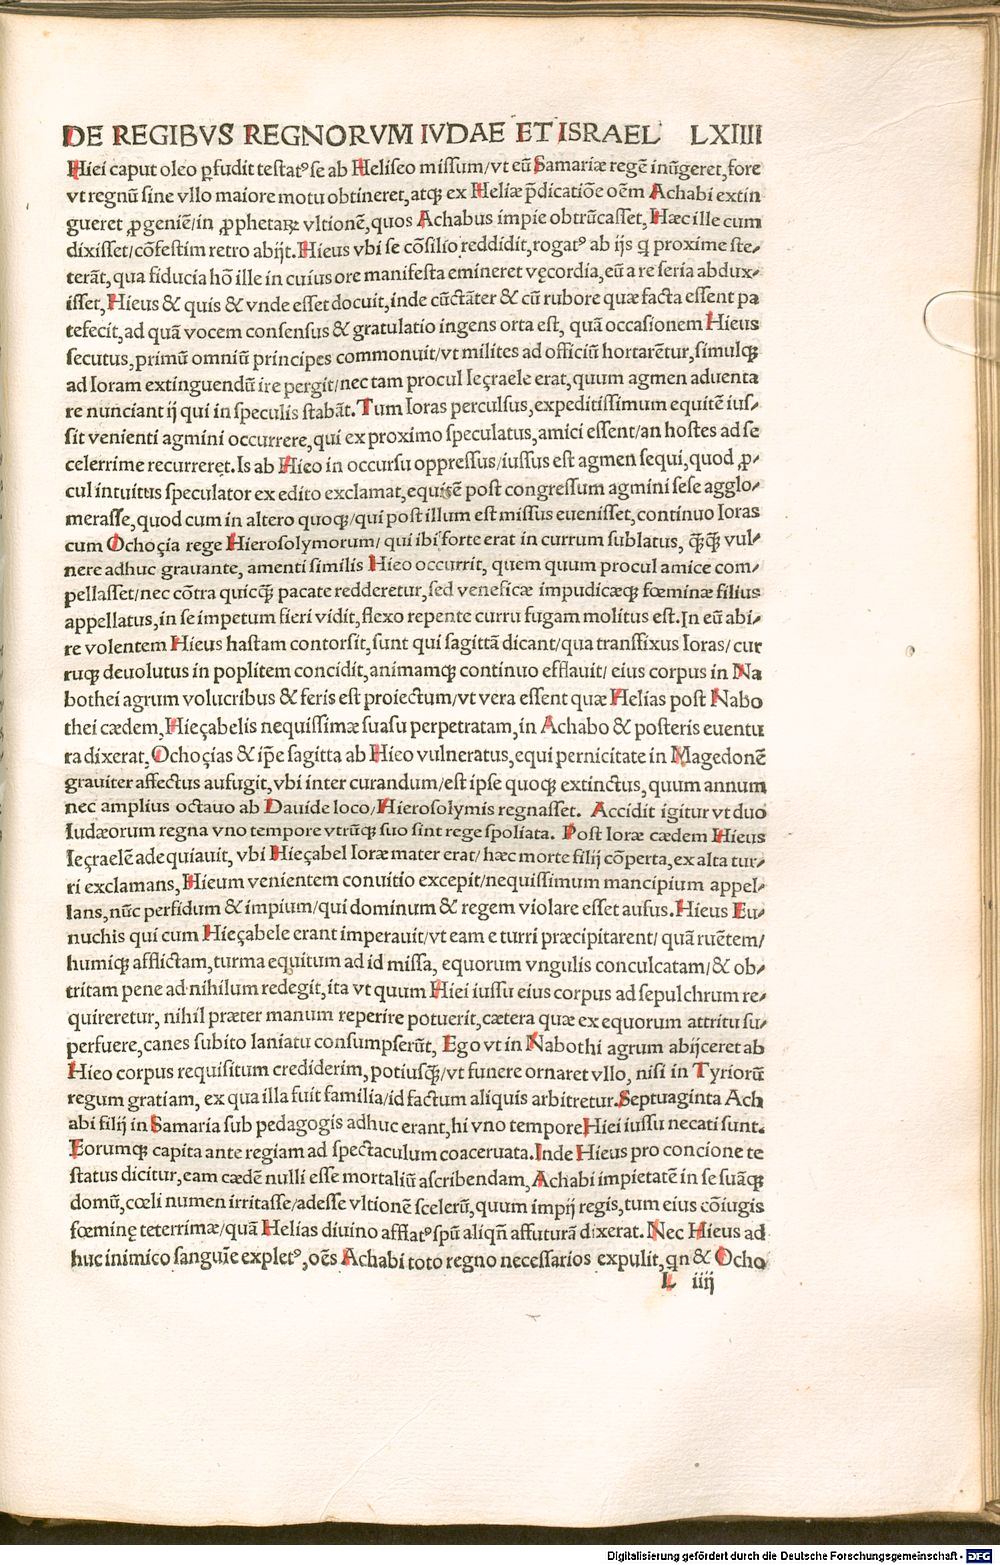 DE REGIBVS REGNORVM IVDAE ET ISRAEL LXIIII
Hiei caput oleo ꝑfudit testatꝰ se ab Heliseo missum/vt eū Samariæ regē inūgeret, fore
vt regnū sine vllo maiore motu obtineret, atqꝫ ex Heliæ p̄dicatiōe oēm Achabi extin
gueret ꝓgeniē/in ꝓphetaꝝ vltionē, quos Achabus impie obtrūcasset, Hæc ille cum
dixisset/cōfestim retro abijt. Hieus vbi se cōsilio reddidit, rogatꝰ ab ijs q proxime ste⸗
terāt, qua fiducia hō ille in cuius ore manifesta emineret vęcordia, eū a re seria abdux⸗
isset, Hieus & quis & vnde esset docuit, inde cūctāter & cū rubore quæ facta essent pa
tefecit, ad quā vocem consensus & gratulatio ingens orta est, quā occasionem Hieus
secutus, primū omniū principes commonuit/vt milites ad officiū hortarētur, simulqꝫ
ad Ioram extinguendū ire pergit/nec tam procul Ieçraele erat, quum agmen aduenta
re nunciant ij qui in speculis stabāt. Tum Ioras perculsus, expeditissimum equitē ius⸗
sit venienti agmini occurrere, qui ex proximo speculatus, amici essent/an hostes ad se
celerrime recurreret. Is ab Hieo in occursu oppressus/iussus est agmen sequi, quod ꝓ⸗
cul intuitus speculator ex edito exclamat, equitē post congressum agmini sese agglo⸗
merasse, quod cum in altero quoqꝫ/qui post illum est missus euenisset, continuo Ioras
cum Ochoçia rege Hierosolymorum/ qui ibi forte erat in currum sublatus, q̄qꝫ vul⸗
nere adhuc grauante, amenti similis Hieo occurrit, quem quum procul amice com⸗
pellasset/nec cōtra quicqꝫ pacate redderetur, sed veneficæ impudicæqꝫ fœminæ filius
appellatus, in se impetum fieri vidit, flexo repente curru fugam molitus est. In eū abi⸗
re volentem Hieus hastam contorsit, sunt qui sagittā dicant/qua transfixus Ioras/ cur
ruqꝫ deuolutus in poplitem concidit, animamqꝫ continuo efflauit/ eius corpus in Na
bothei agrum volucribus & feris est proiectum/vt vera essent quæ Helias post Nabo
thei cædem, Hieçabelis nequissimæ suasu perpetratam, in Achabo & posteris euentu
ra dixerat, Ochoçias & ip̄e sagitta ab Hieo vulneratus, equi pernicitate in Magedonē
grauiter affectus aufugit, vbi inter curandum/est ipse quoqꝫ extinctus, quum annum
nec amplius octauo ab Dauide loco/Hierosolymis regnasset. Accidit igitur vt duo
Iudæorum regna vno tempore vtrūqꝫ suo sint rege spoliata. Post Ioræ cædem Hieus
Ieçraelē adequiauit, vbi Hieçabel Ioræ mater erat/ hæc morte filij cōperta, ex alta tur⸗
ri exclamans, Hieum venientem conuitio excepit/nequissimum mancipium appel⸗
lans, nūc perfidum & impium/qui dominum & regem violare esset ausus. Hieus Eu⸗
nuchis qui cum Hieçabele erant imperauit/vt eam e turri præcipitarent/ quā ruētem/
humiqꝫ afflictam, turma equitum ad id missa, equorum vngulis conculcatam/& ob⸗
tritam pene ad nihilum redegit, ita vt quum Hiei iussu eius corpus ad sepulchrum re⸗
quireretur, nihil præter manum reperire potuerit, cætera quæ ex equorum attritu su⸗
perfuere, canes subito laniatu consumpserūt, Ego vt in Nabothi agrum abijceret ab
Hieo corpus requisitum crediderim, potiusqꝫ/vt funere ornaret vllo, nisi in Tyriorū
regum gratiam, ex qua illa fuit familia/id factum aliquis arbitretur. Septuaginta Ach
abi filij in Samaria sub pedagogis adhuc erant, hi vno tempore Hiei iussu necati sunt.
Eorumqꝫ capita ante regiam ad spectaculum coaceruata. Inde Hieus pro concione te
status dicitur, eam cædē nulli esse mortaliū ascribendam, Achabi impietatē in se suāqꝫ
domū, cœli numen irritasse/adesse vltionē scelerū, quum impij regis, tum eius cōiugis
fœminę teterrimæ/quā Helias diuino afflatꝰ spū aliqn̄ affuturā dixerat. Nec Hieus ad
huc inimico sanguīe expletꝰ, oēs Achabi toto regno necessarios expulit, qn & Ocho
L iiij
Digitalisierung gefördert durch die Deutsche Forschungsgemeinschaft - DFG